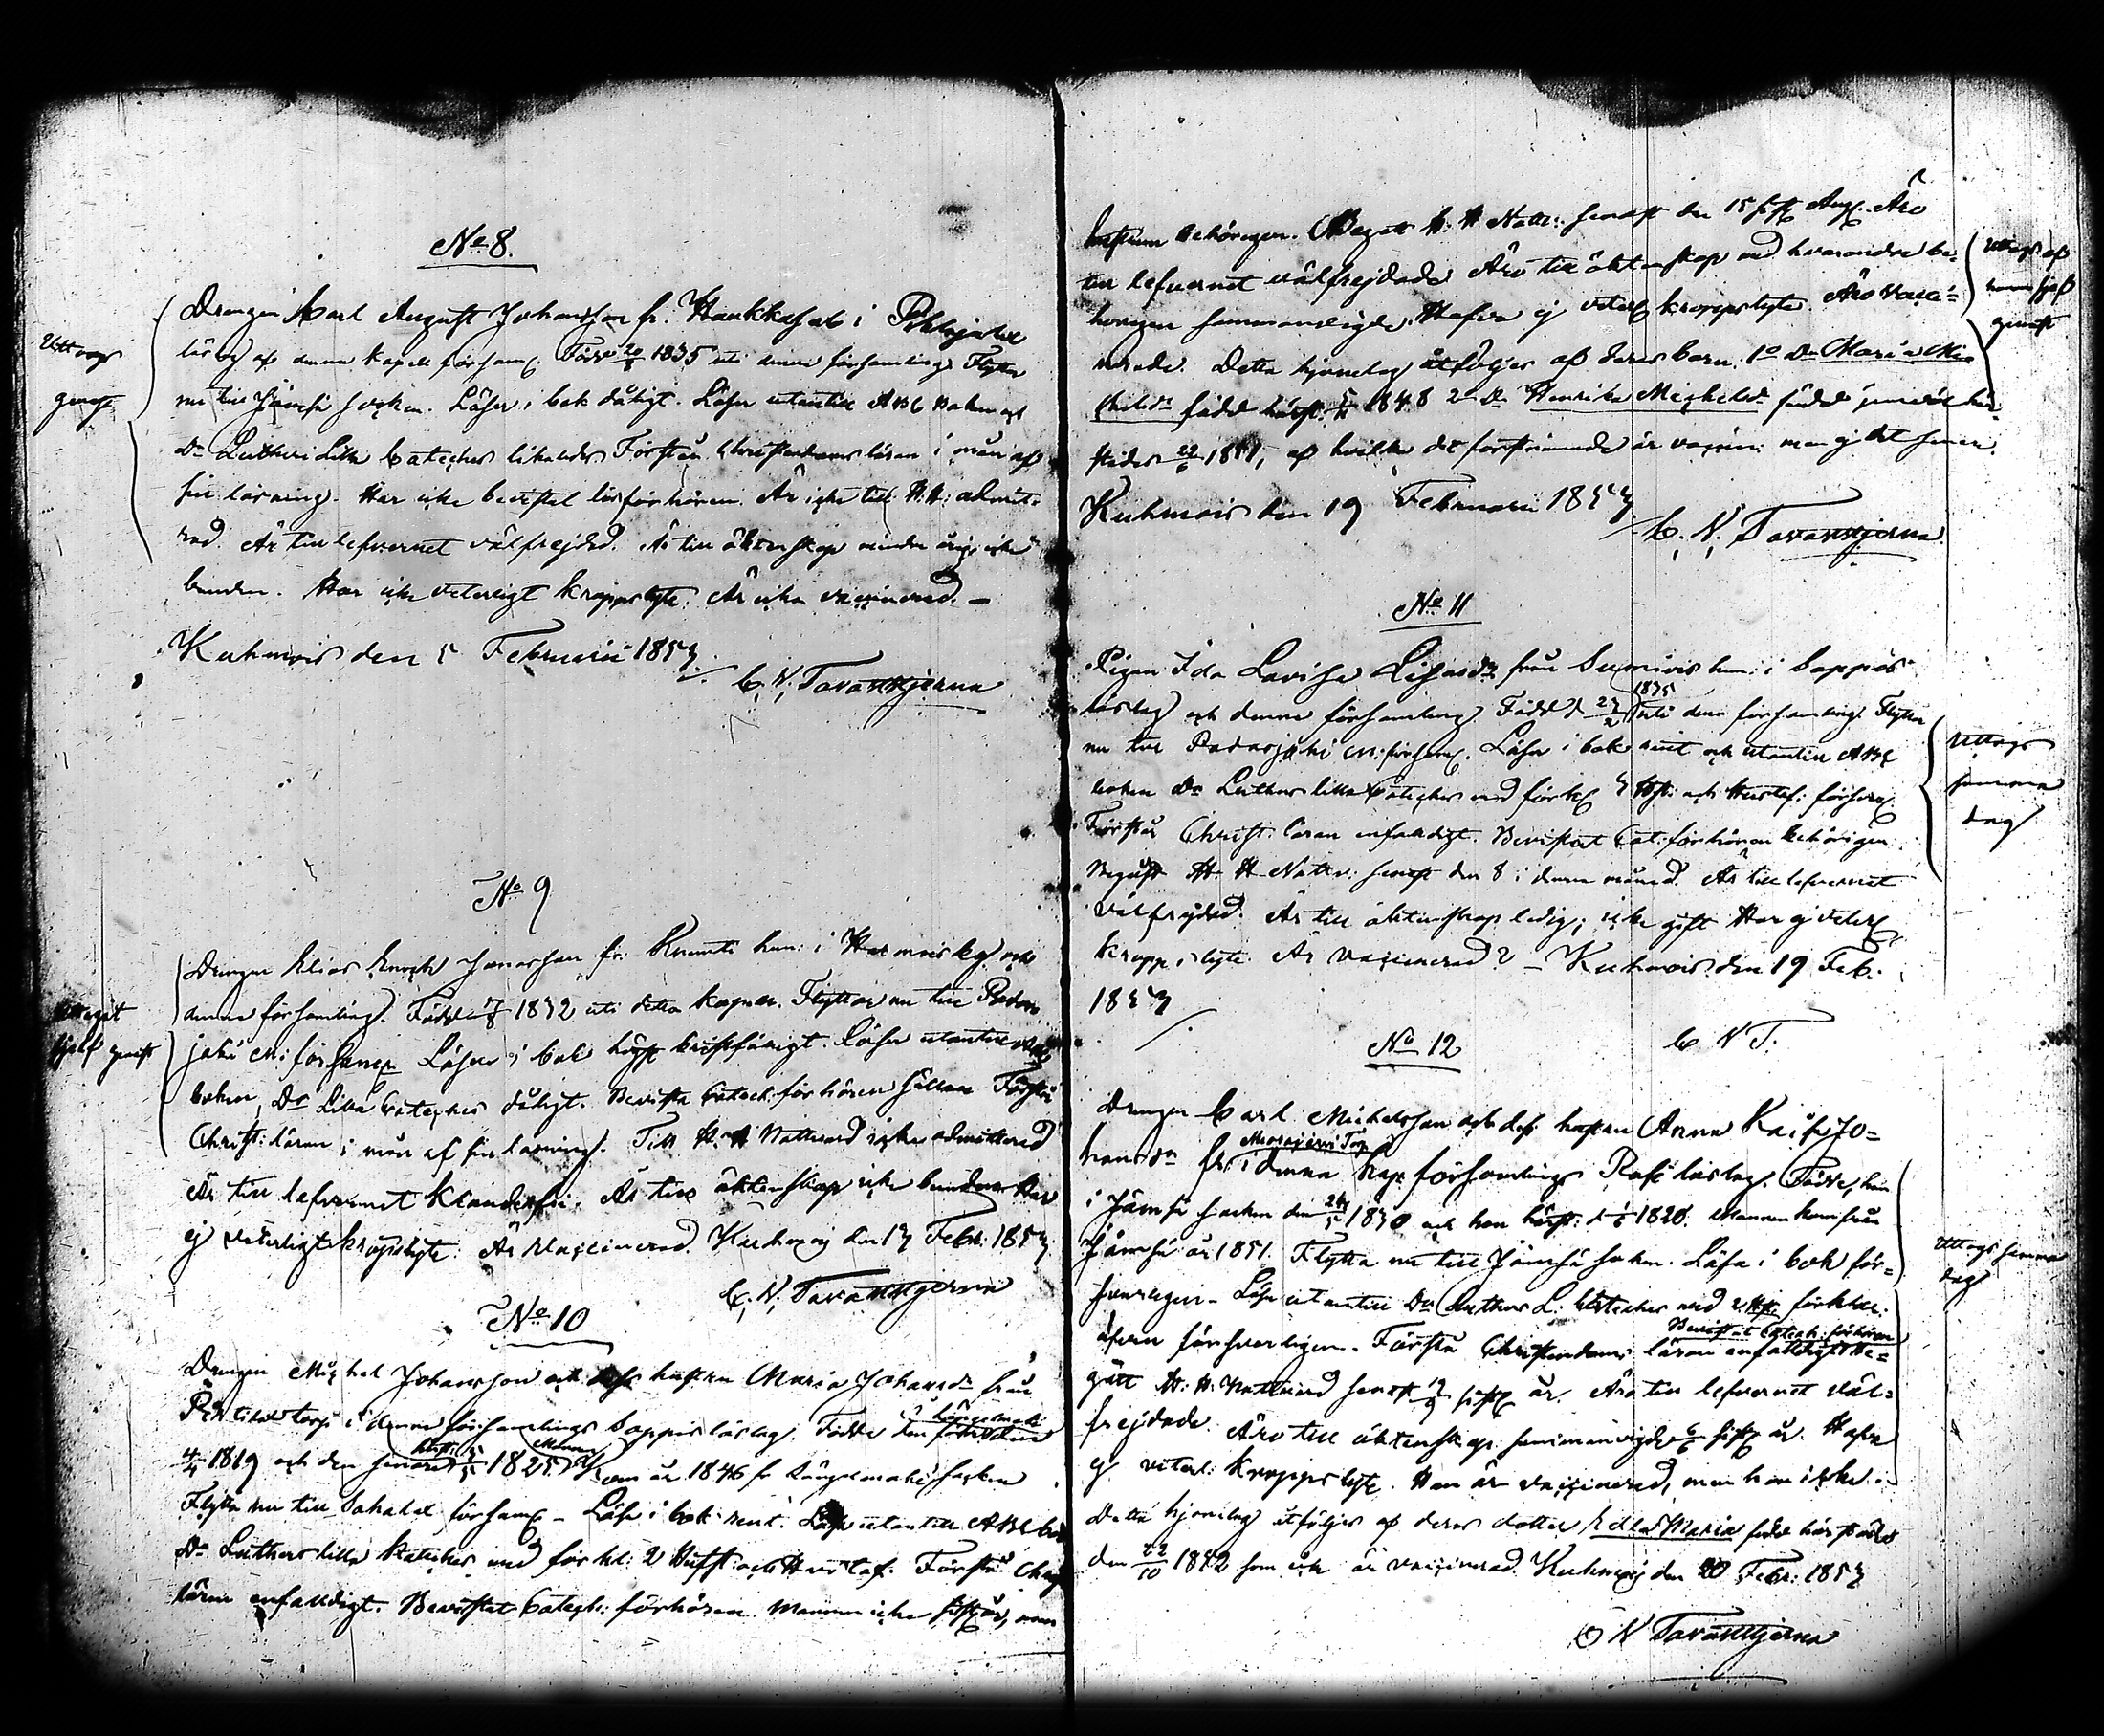 No 8.
Drengen Carl August Johansson fr. Haukkasalo i Pihlajakoski
lästag af denna kapell församl. Född 20/3 1835 uti denna församling. Flyttar
nu till Jämsä socken. Läser i bok dåligt. Läser utantill ABC boken och
Dr Lutheri Lilla Cateches likaledes. Förstår Christendoms läran i mån af
sin läsning. Har icke bevistat läsförhören. Är icke till H.H. admit-
terad. Är till lefvernet välfrejdad. Är till äktenskap minderårig, icke
bunden. Har icke veterligt kroppslyte. Är icke vaccinerad. –
Kuhmois den 5 Februarii 1857.
C. N. Tavaststjerna
Uttogs
genast
No 9
Drengen Elias Enoch Jonasson fr. hem: i och
denna församling. Född 7/8 1832 uti detta kapell. Flyttar nu till Padas-
joki M: församl. Läser i bok högst bristfälligt. Läser utantill ABC
boken, Dr Lilla Cateches dåligt. Bevista Catech. förhören sällan. Förstår
Christ: läran i mån af sin läsning. Till H. H Nattvard icke admitterad
Är till lefvernet klanderfri. Är till äktenskap icke bunden. Har
ej veterligt kroppslyte. Är Vaccinerad. Kuhmois den 17 Febr: 1857.
C. N. Tavaststjerna
Uttaget
sjelf genast
No 10
Drengen Michel Johansson och dess hustru Maria Johansdr från
torp i denna församlings Soppis lästag. Födde den förre den
i Längelmäki
4/4 1819 och den senare 5/5 1825. Kom år 1846 fr Längelmäki socken
härst: Mannen
Flytta nu till Sahalax församl – Läsa i bok rent. Läsa utantill ABC bok
Dr Luthers lilla Cateches med förkl: 2 Hufst: och Hustaf. Förstå Chr.
läran enfaldigt. Bevistat Catech: förhören. Mannen icke sistl. år, men
hustrun behörigen. Begått H. H Nattv: senast den 15 sistl. Aug. Äro
till lefvernet välfrejdade. Äro till äktenskap med hvarandra be-
hörigen sammanvigde. Hafva ej veterl. kroppslyte. Äro Vacci-
nerade. Detta hjonelag åtföljes af deras barn 1o Maria Mi-
chelsdr född härst. 1848 2o Henrika Michelsdr född jemväl här-
städes 22/6 1851, af hvilka det förstnämnde är vaccin: men ej det senare.
Kuhmois den 19 Februarii 1857
C. N. Tavaststjerna
Uttogs af
mannen sjelf
genast
No 11
Pigan Ida Lovisa från hem: i Soppis
lästag och denna församling. Född d 27/2 1835 uti denna församling. Flyttar
nu till Padasjoki M: församl. Läser i bok rent och utantill ABC
boken Dr Luthers lilla Cateches med förkl. Hufst: och Hustaf: försvarl.
Förstår Christ. läran enfaldigt. Bevistat Cat: förhören behörigen.
Begått H. H Nattv: senast den 8 i denna månad. Är till lefvernet
välfrejdad. Är till äktenskap ledig; icke gift. Har ej veterl.
kroppslyte. Är Vaccinerad? – Kuhmois den 19 Feb.
1857
C N T.
Uttogs
samma
dag
No 12
Drengen Carl Michelsson och dess hustru Anna Kaisa Jo-
hansdr fr. i denna kap församlings lästag. Födde, han
i Jämsä socken den 24/5 1830 och hon härst: d 1828. Mannen kom från
Jämsä år 1851. Flytta nu till Jämsä socken. Läsa i bok för-
svarligen – Läsa utantill Dr Luthers L: Cateches med 2 Hfst: förklar.
äfven försvarligen. Förstå Christendoms läran enfaldigt. Be-
Bevistat Catech: förhören
gått H: H. Nattvard senast 19/9 sistl. år. Äro till lefvernet väl-
frejdade. Äro till äktenskap sammanvigde 6/6 sistl. år. Hafva
ej veterl: kroppslyte. Han är vaccinerad, men hon icke. –
Detta hjonelag åtföljes af deras dotter Edla Maria född härstädes
den 22/10 1852 som icke är vaccinerad. Kuhmois den 20 Febr: 1857
C N Tavaststjerna
Uttogs samma
dag